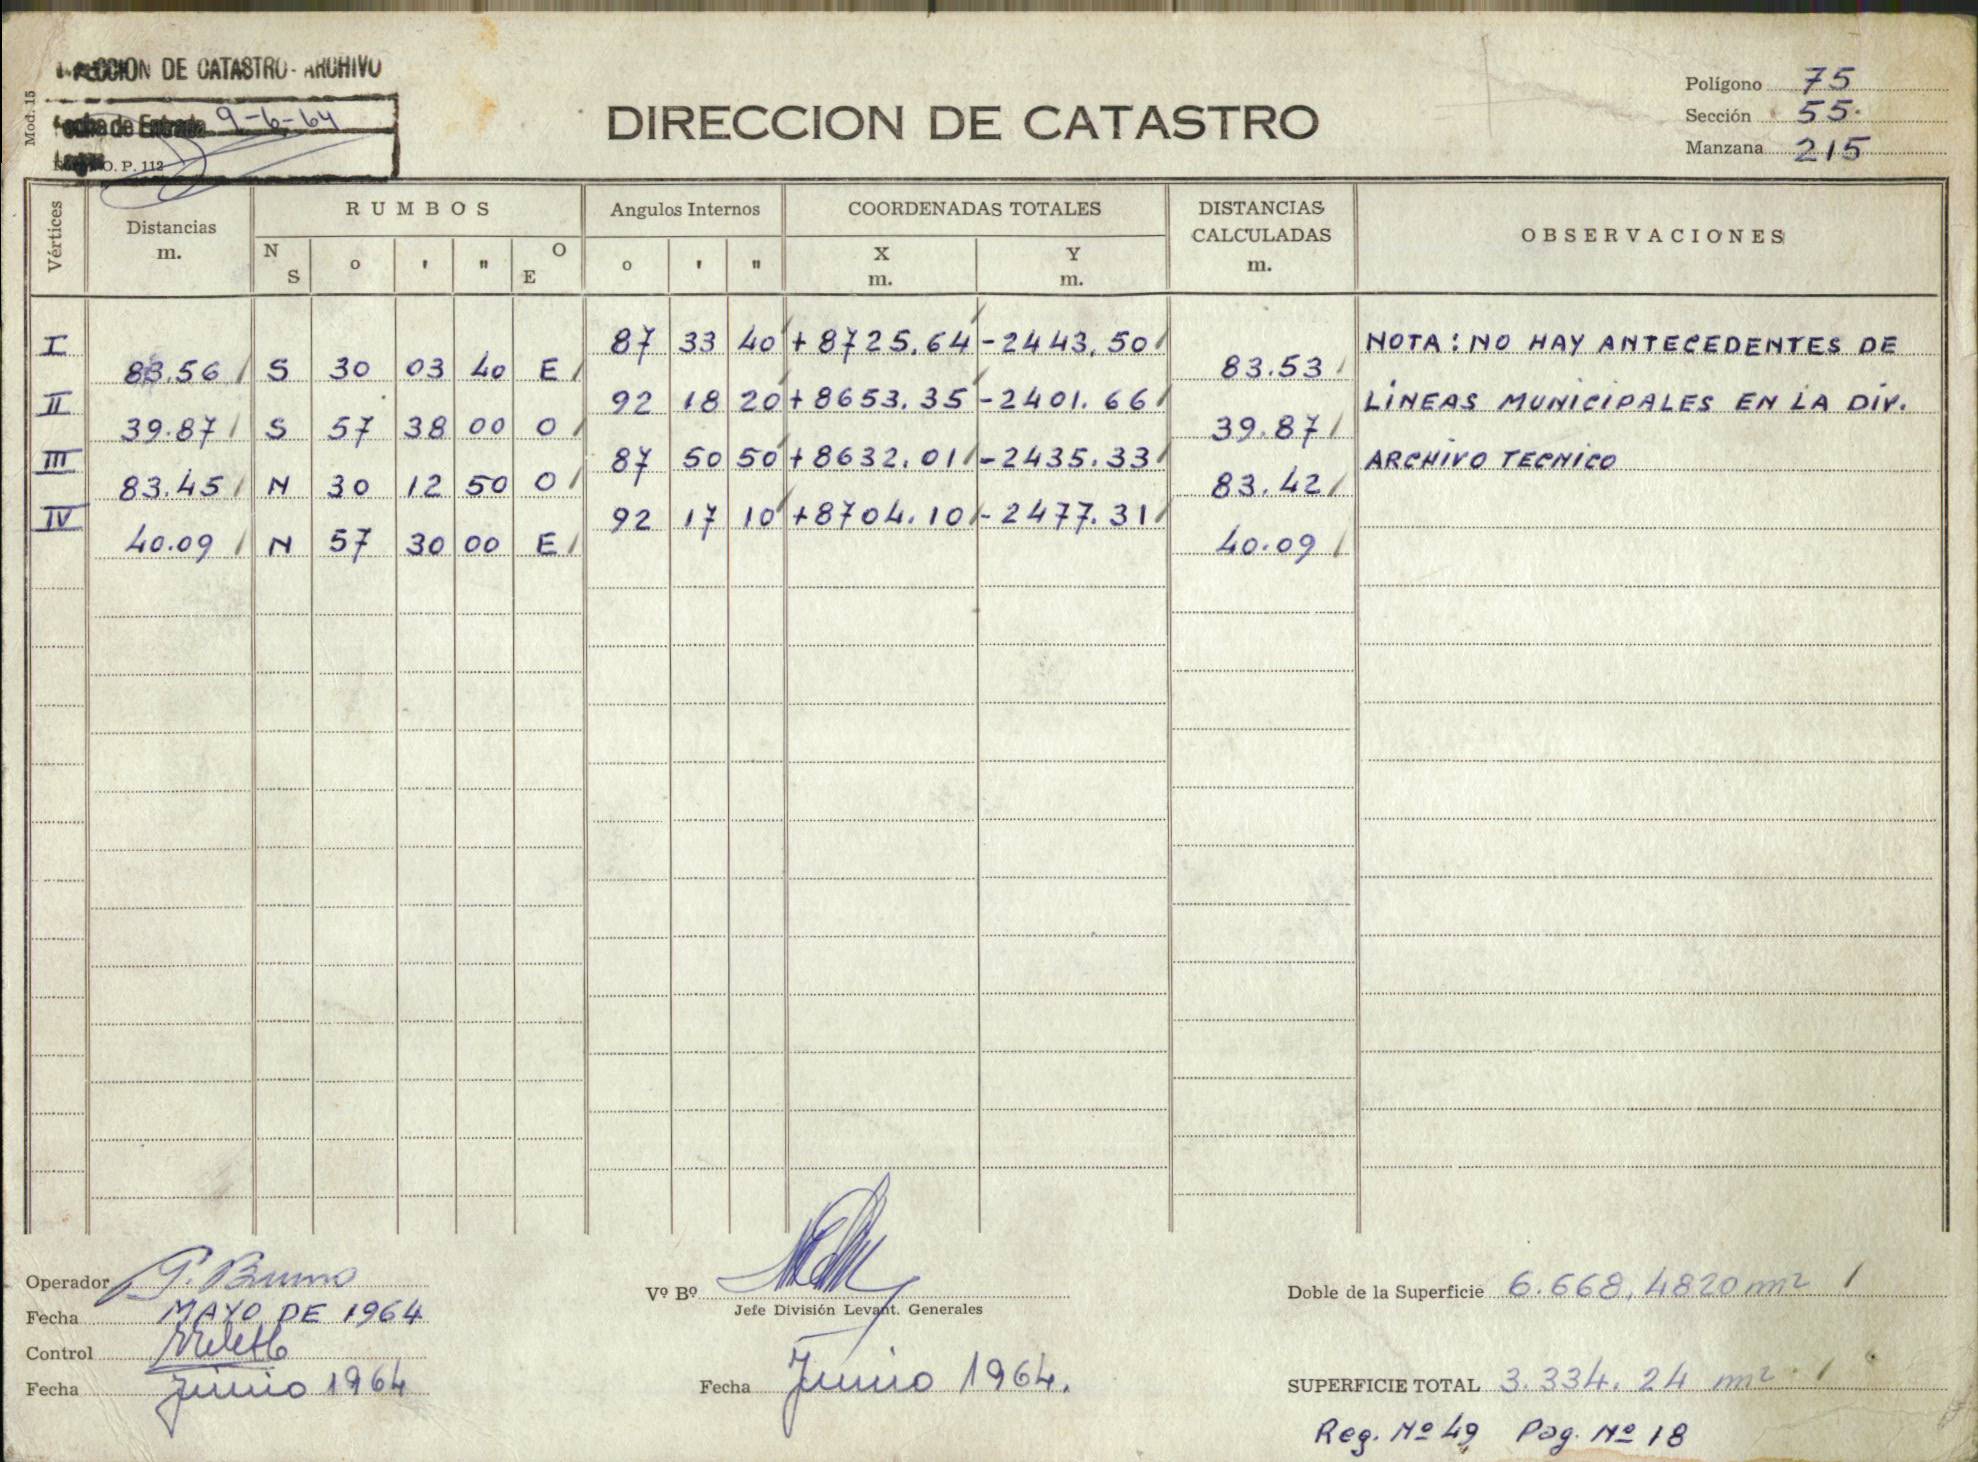 DE CATASTRO - ARCHIVO
Mod. 15
Fecha de Entrada 9-6-64
O. P. 112
DIRECCION DE CATASTRO
Polígono 75
Sección 55.
Manzana 215
Vértices
Distancias m.
RUMBOS
N S o ' " O E
Angulos Internos
o ' "
COORDENADAS TOTALES
X m. Y m.
DISTANCIAS CALCULADAS m.
OBSERVACIONES
I 87 33 40 +8725.64 -2443.50 NOTA: NO HAY ANTECEDENTES DE
83.56 S 30 03 40 E 83.53
II 92 18 20 +8653.35 -2401.66 LINEAS MUNICIPALES EN LA DIV.
39.87 S 57 38 00 O 39.87
III 87 50 50 +8632.01 -2435.33 ARCHIVO TECNICO
83.45 N 30 12 50 O 83.42
IV 92 17 10 +8704.10 -2477.31
40.09 N 57 30 00 E 40.09
Operador G. Bruno
Fecha MAYO DE 1964
Control
Fecha Junio 1964
Vº Bº
Jefe División Levant. Generales
Fecha Junio 1964.
Doble de la Superficie 6.668,4820 m²
SUPERFICIE TOTAL 3.334.24 m²
Reg. Nº 49 Pag. Nº 18